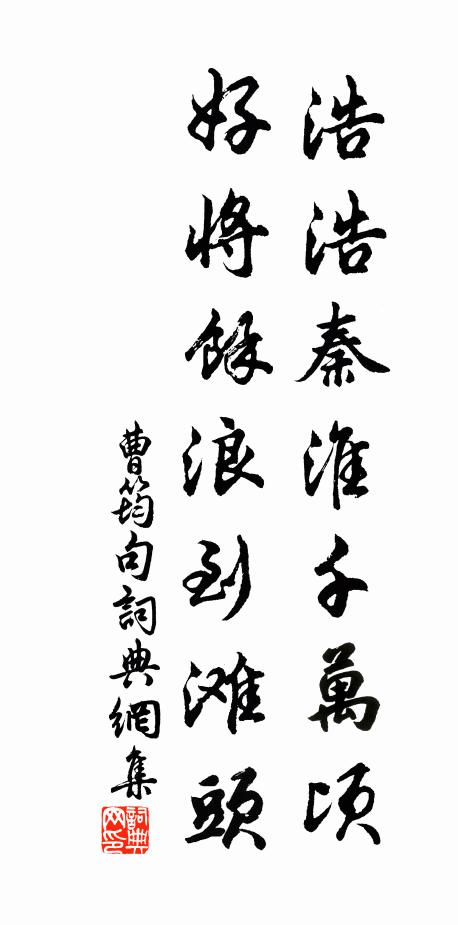 浩浩秦淮千萬頃
好將餘浪到滩頭
曹筠句詞典網集
詞典网印